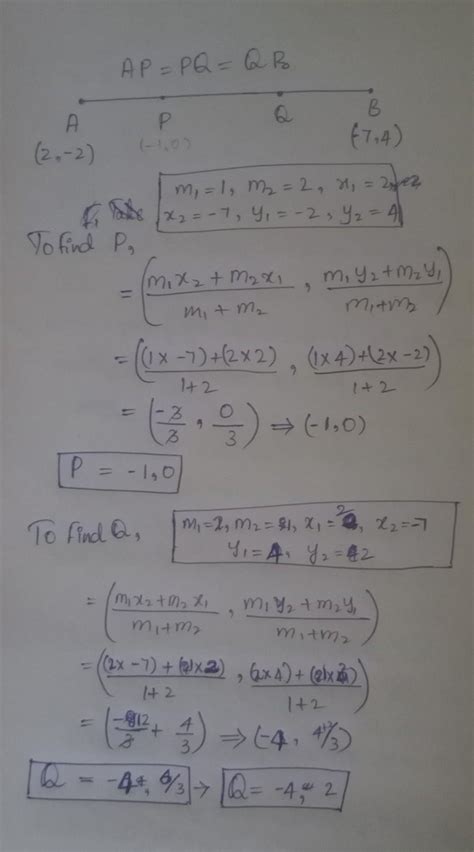 AP = PQ = QB
A P Q B
(2,-2) (-1,0) (-7,4)
m₁=1, m₂=2, x₁=2,
x₂=-7, y₁=-2, y₂=4
To find P,
= ( (m₁x₂+m₂x₁)/(m₁+m₂) , (m₁y₂+m₂y₁)/(m₁+m₂) )
= ( ((1×-7)+(2×2))/(1+2) , ((1×4)+(2×-2))/(1+2) )
= ( -3/3 , 0/3 ) ⇒ (-1,0)
P = -1,0
To find Q, m₁=2, m₂=1, x₁=2, x₂=-7
y₁= y₂=
= ( (m₁x₂+m₂x₁)/(m₁+m₂) , (m₁y₂+m₂y₁)/(m₁+m₂) )
= ( ((2×-7)+(1×2))/(1+2) , ((2×4)+ )/(1+2) )
= ( -12/3 + 4/3 ) ⇒ (-4, /3)
Q = -4, 6/3 → Q = -4, 2